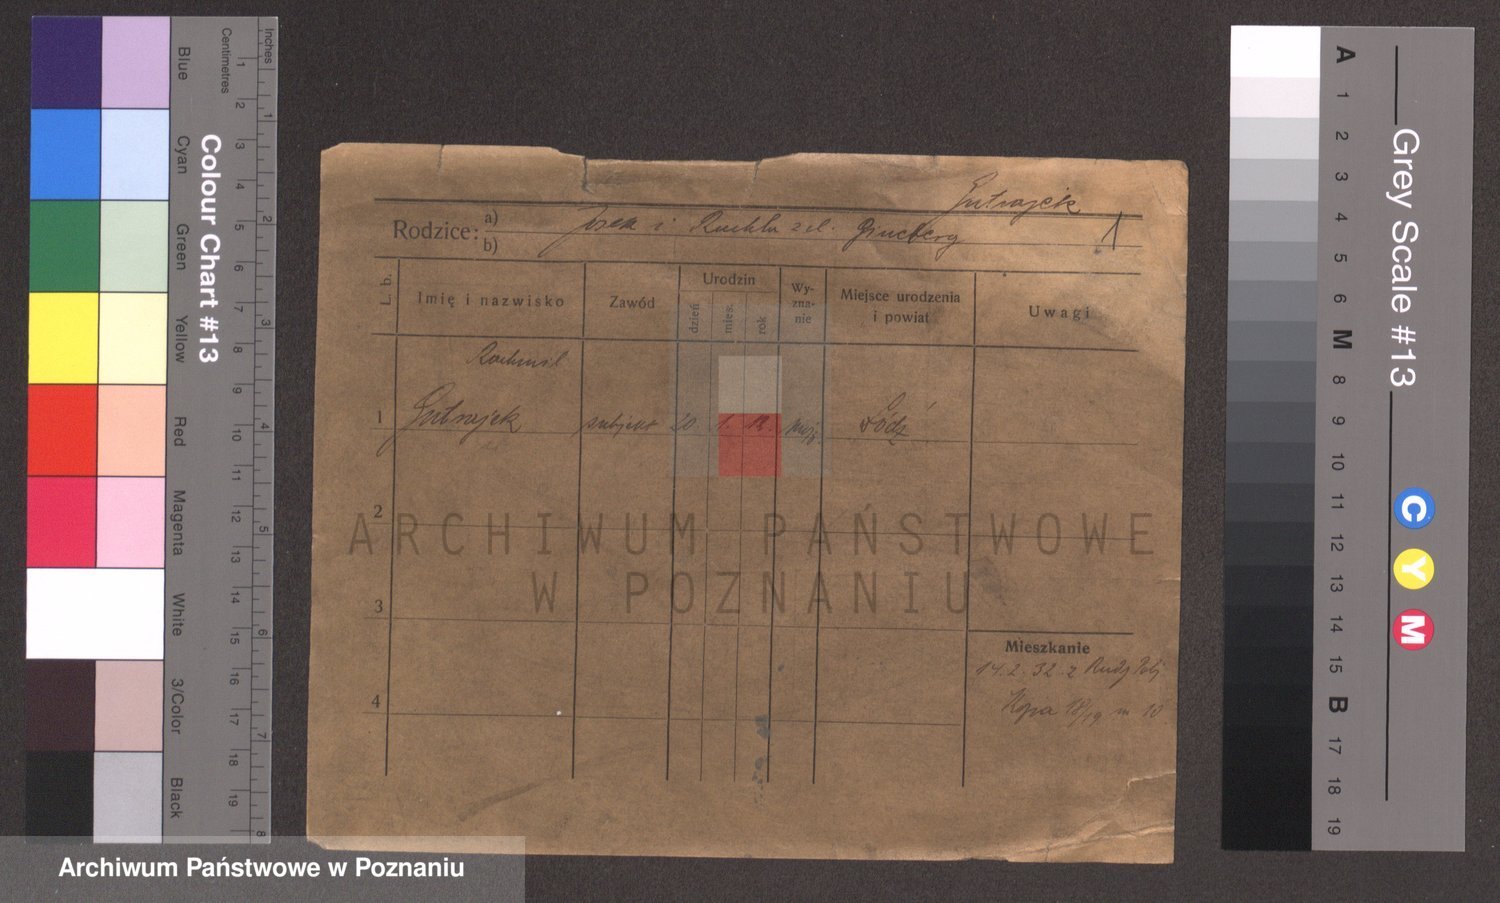 Inches
Centimetres
Colour Chart #13
Blue
Cyan
Green
Yellow
Red
Magenta
White
3/Color
Black
1
2
3
4
5
6
7
8
9
10
11
12
13
14
15
16
17
18
19
1
2
3
4
5
6
7
8
Gutrajek
Rodzice: a) Josek i Ruchla z d. Gincberg
b)
1
L. b.
Imię i nazwisko
Zawód
Urodzin
dzień
mies.
rok
Wy-
zna-
nie
Miejsce urodzenia
i powiat
Uwagi
1 Gutrajek subjekt 20 1. Łódź
2
3
4
Mieszkanie
14.2.32 z Rudy Pabj
Kopa 18/19 m 10
ARCHIWUM PAŃSTWOWE
W POZNANIU
Archiwum Państwowe w Poznaniu
Grey Scale #13
A
1
2
3
4
5
6
M
8
9
10
11
12
13
14
15
B
17
18
19
C
Y
M